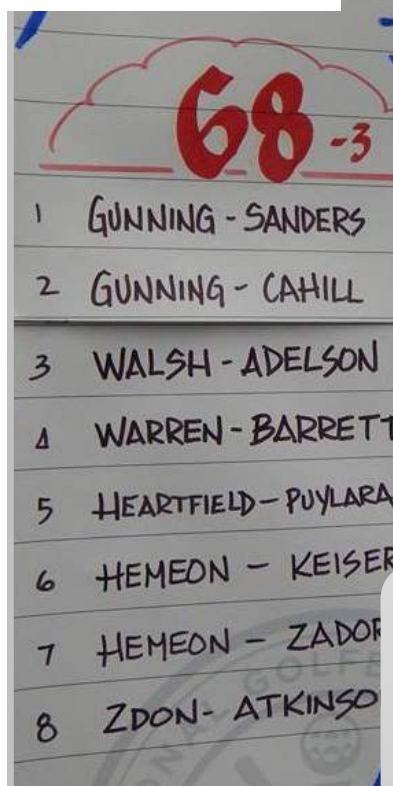 68 -3
1 GUNNING - SANDERS
2 GUNNING - CAHILL
3 WALSH - ADELSON
4 WARREN - BARRETT
5 HEARTFIELD - PUYLARA
6 HEMEON - KEISER
7 HEMEON - ZADOR
8 ZDON - ATKINSO
ONAL GOLFE